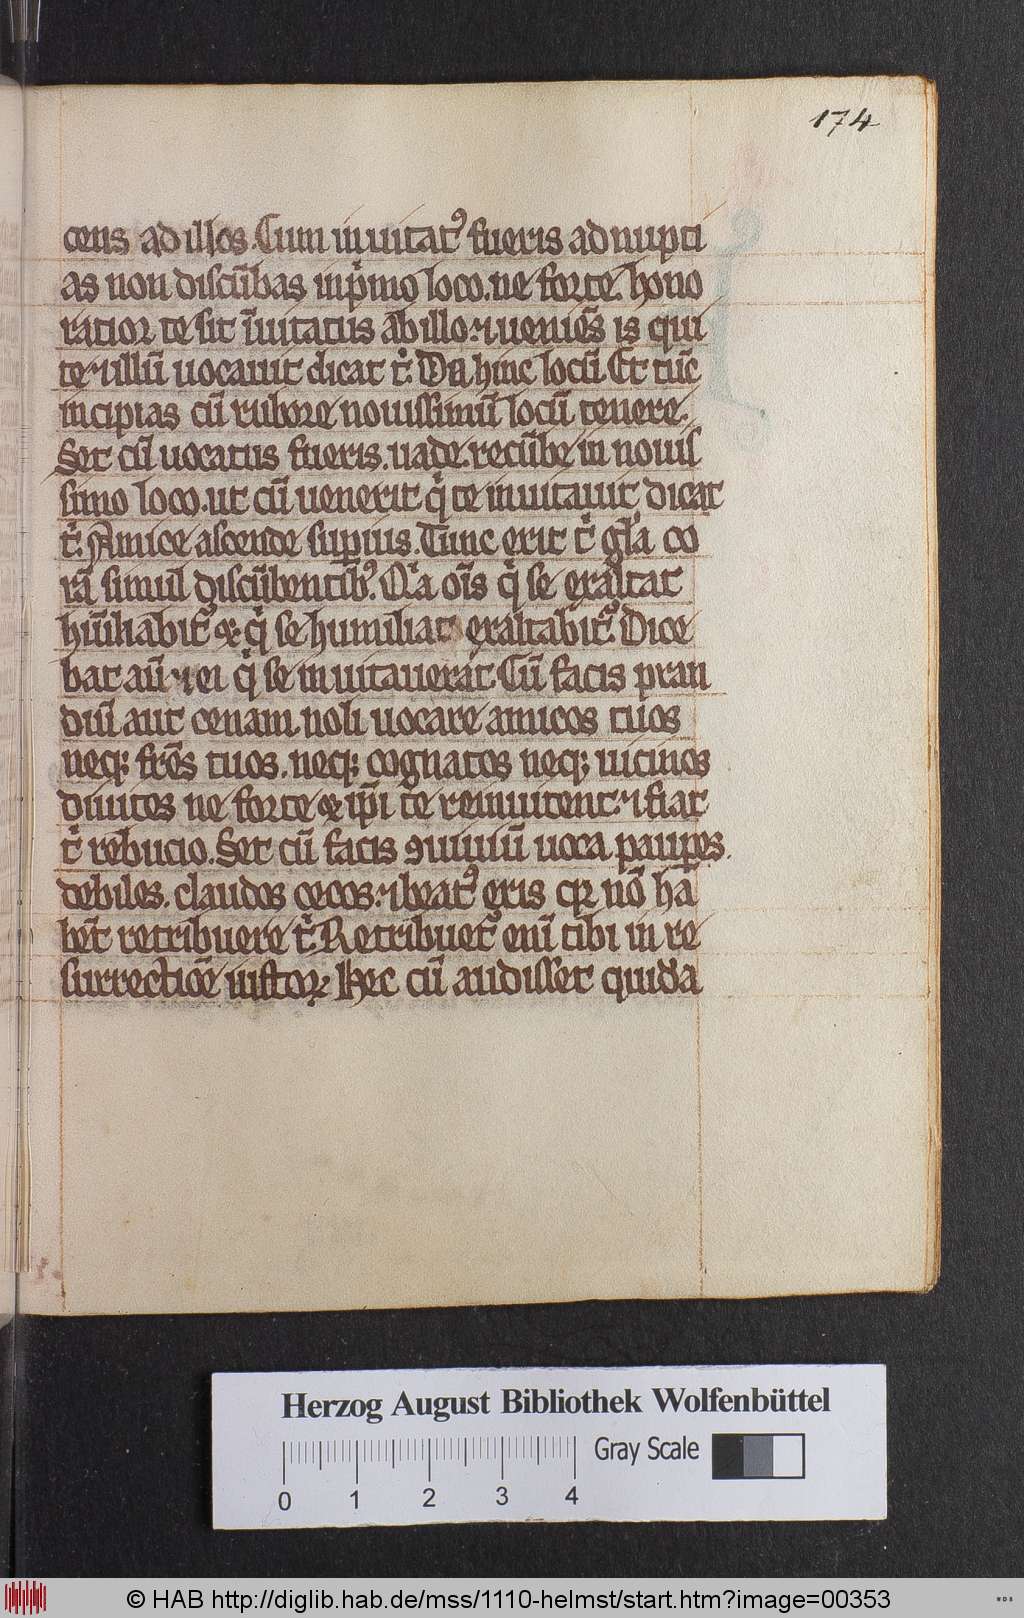 174
cens ad illos. Cum inuitatꝰ fueris ad nupti
as non discūbas in pⁱmo loco. ne forte hono
ratior te sit īuitatus ab illo. ⁊ ueniēs is qui
te ⁊ illū uocauit dicat tⁱ. Da hinc locū. Et tūc
incipias cū rubore nouissimū locū tenere.
Set cū uocatus fueris. uade. recūbe in nouis
simo loco. ut cū uenerit qⁱ te inuitauit dicat
tⁱ. Amice ascende supius. Tunc erit tⁱ gl̄a co
rā simul discūbentibꝰ. Qᵃ oīs qⁱ se exaltat
hūiliabit᷑ & qⁱ se humiliat exaltabit᷑. Dice
bat aū ⁊ ei qⁱ se inuitauerat. Cū facis pran
diū aut cenam noli uocare amicos tuos
neqꝫ fr̄es tuos. neqꝫ cognatos neqꝫ uicinos
diuites ne forte & ip̄i te reinuitent. ⁊ fiat
tⁱ rebucio. Set cū facis ꝯuiuiū uoca paupes.
debiles. claudos cecos. ⁊ beatꝰ eris qꝛ nō ha
bēt retribuere tⁱ. Retribuet᷑ eni tibi in re
surrectiōe iustoꝝ. Hec cū audisset quidā
Herzog August Bibliothek Wolfenbüttel
Gray Scale
0 1 2 3 4
© HAB http://diglib.hab.de/mss/1110-helmst/start.htm?image=00353